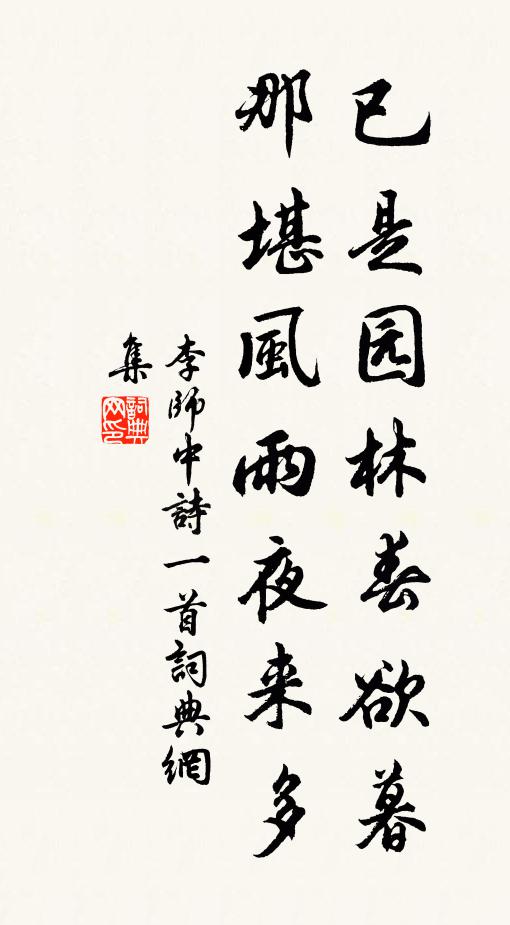 已是园林春欲暮
那堪風雨夜来多
李師中詩一首詞典網
集
詞典网印